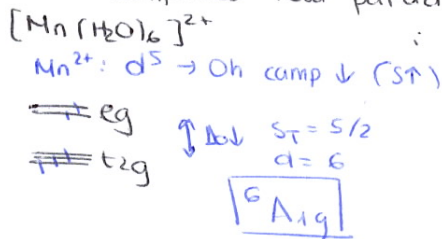 [Mn(H2O)6]2+
Mn2+: d5 → Oh camp ↓ (S↑)
eg
Δo↓ ST = 5/2
t2g d = 6
6A1g